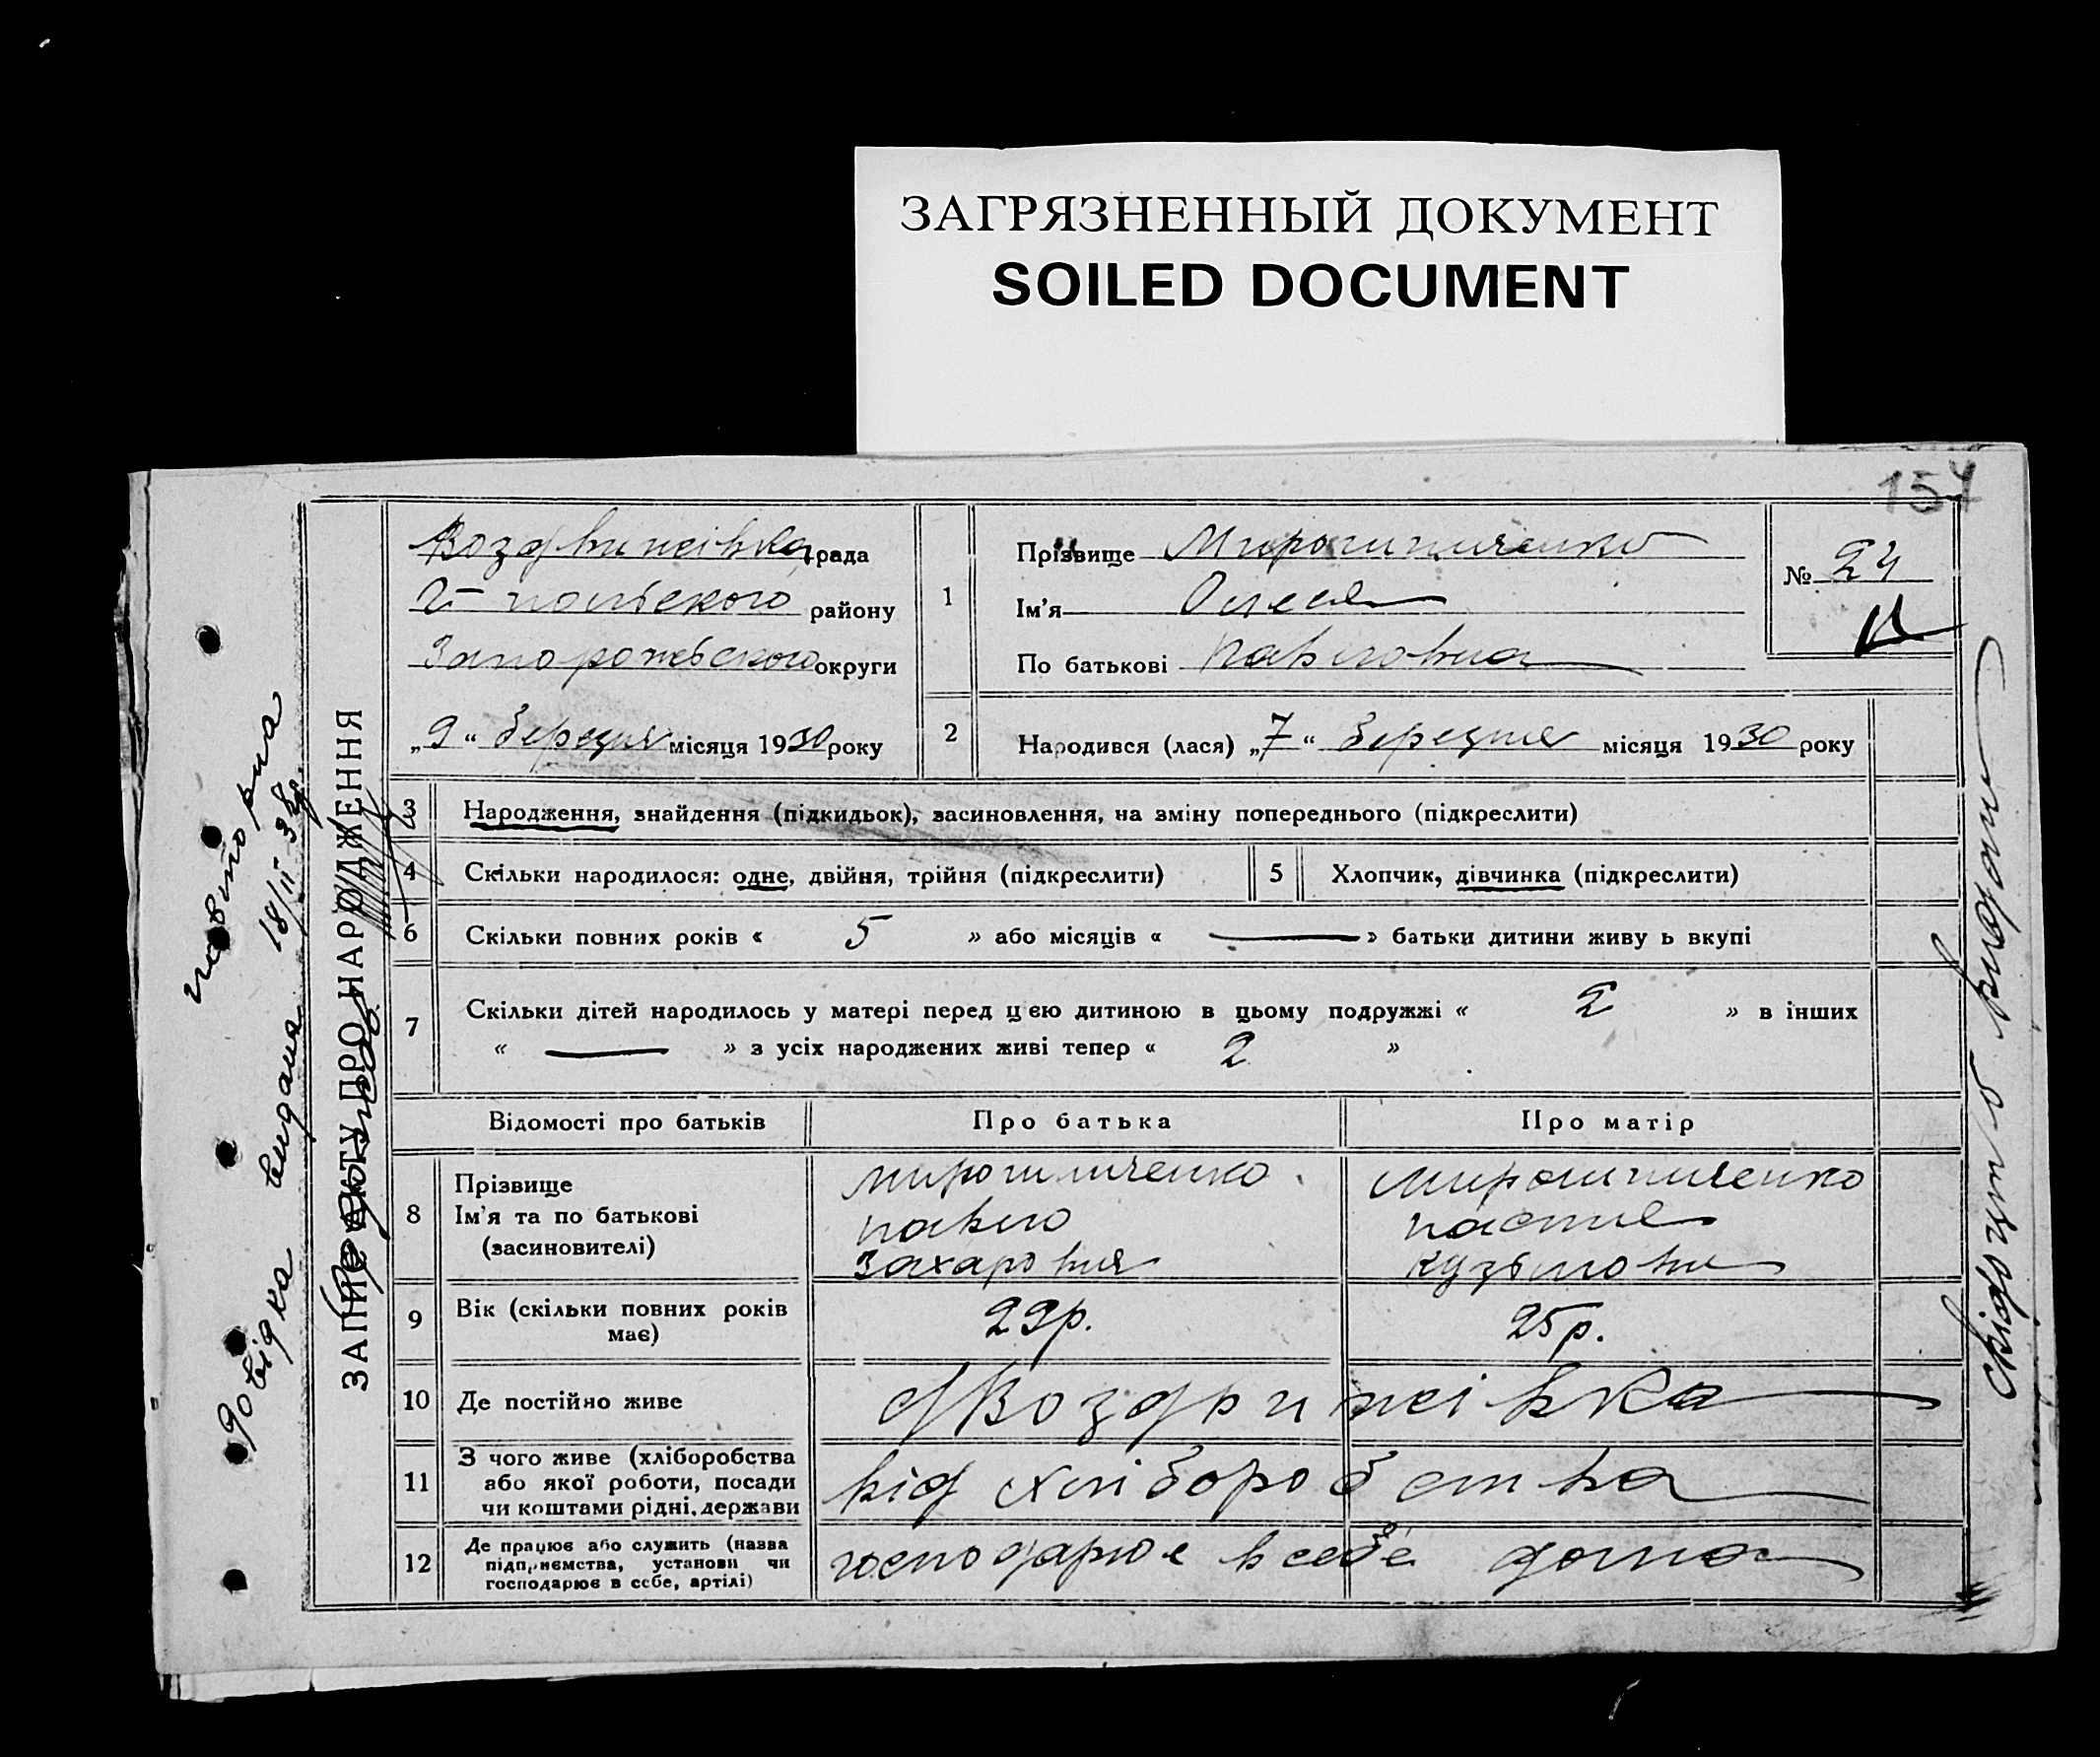 ЗАГРЯЗНЕННЫЙ ДОКУМЕНТ
SOILED DOCUMENT
157
Воздвижівка рада
Г-польского району
Запорожського округи
„9“ березня місяця 1930 року
1
Прізвище Мирошниченко
Ім'я Олеся
По батькові Павловна
№ 24
2
Народився (лася) „7“ березня місяця 1930 року
ЗАПИС АКТУ ПРО НАРОДЖЕННЯ
3 Народження, знайдення (підкидьок), засиновлення, на зміну попереднього (підкреслити)
4 Скільки народилося: одне, двійня, трійня (підкреслити)
5 Хлопчик, дівчинка (підкреслити)
6 Скільки повних років « 5 » або місяців « — » батьки дитини живу ь вкупі
7 Скільки дітей народилось у матері перед цею дитиною в цьому подружжі « 2 » в інших
« — » з усіх народжених живі тепер « 2 »
Відомості про батьків
Про батька
Про матір
8 Прізвище
Ім'я та по батькові
(засиновителі)
Мирошниченко
Павло
Захаровия
Мирошниченко
Настя
Кузьмовна
9 Вік (скільки повних років
має)
29р.
25р.
10 Де постійно живе
Воздвижівка
11 З чого живе (хліборобства
або якої роботи, посади
чи коштами рідні, держави
від хліборобства
12 Де працює або служить (назва
підприємства, установи чи
господарює в себе, артілі)
господарює в себе дома
повторна
довідка видана 18/II 38р.
свідоцтво видано